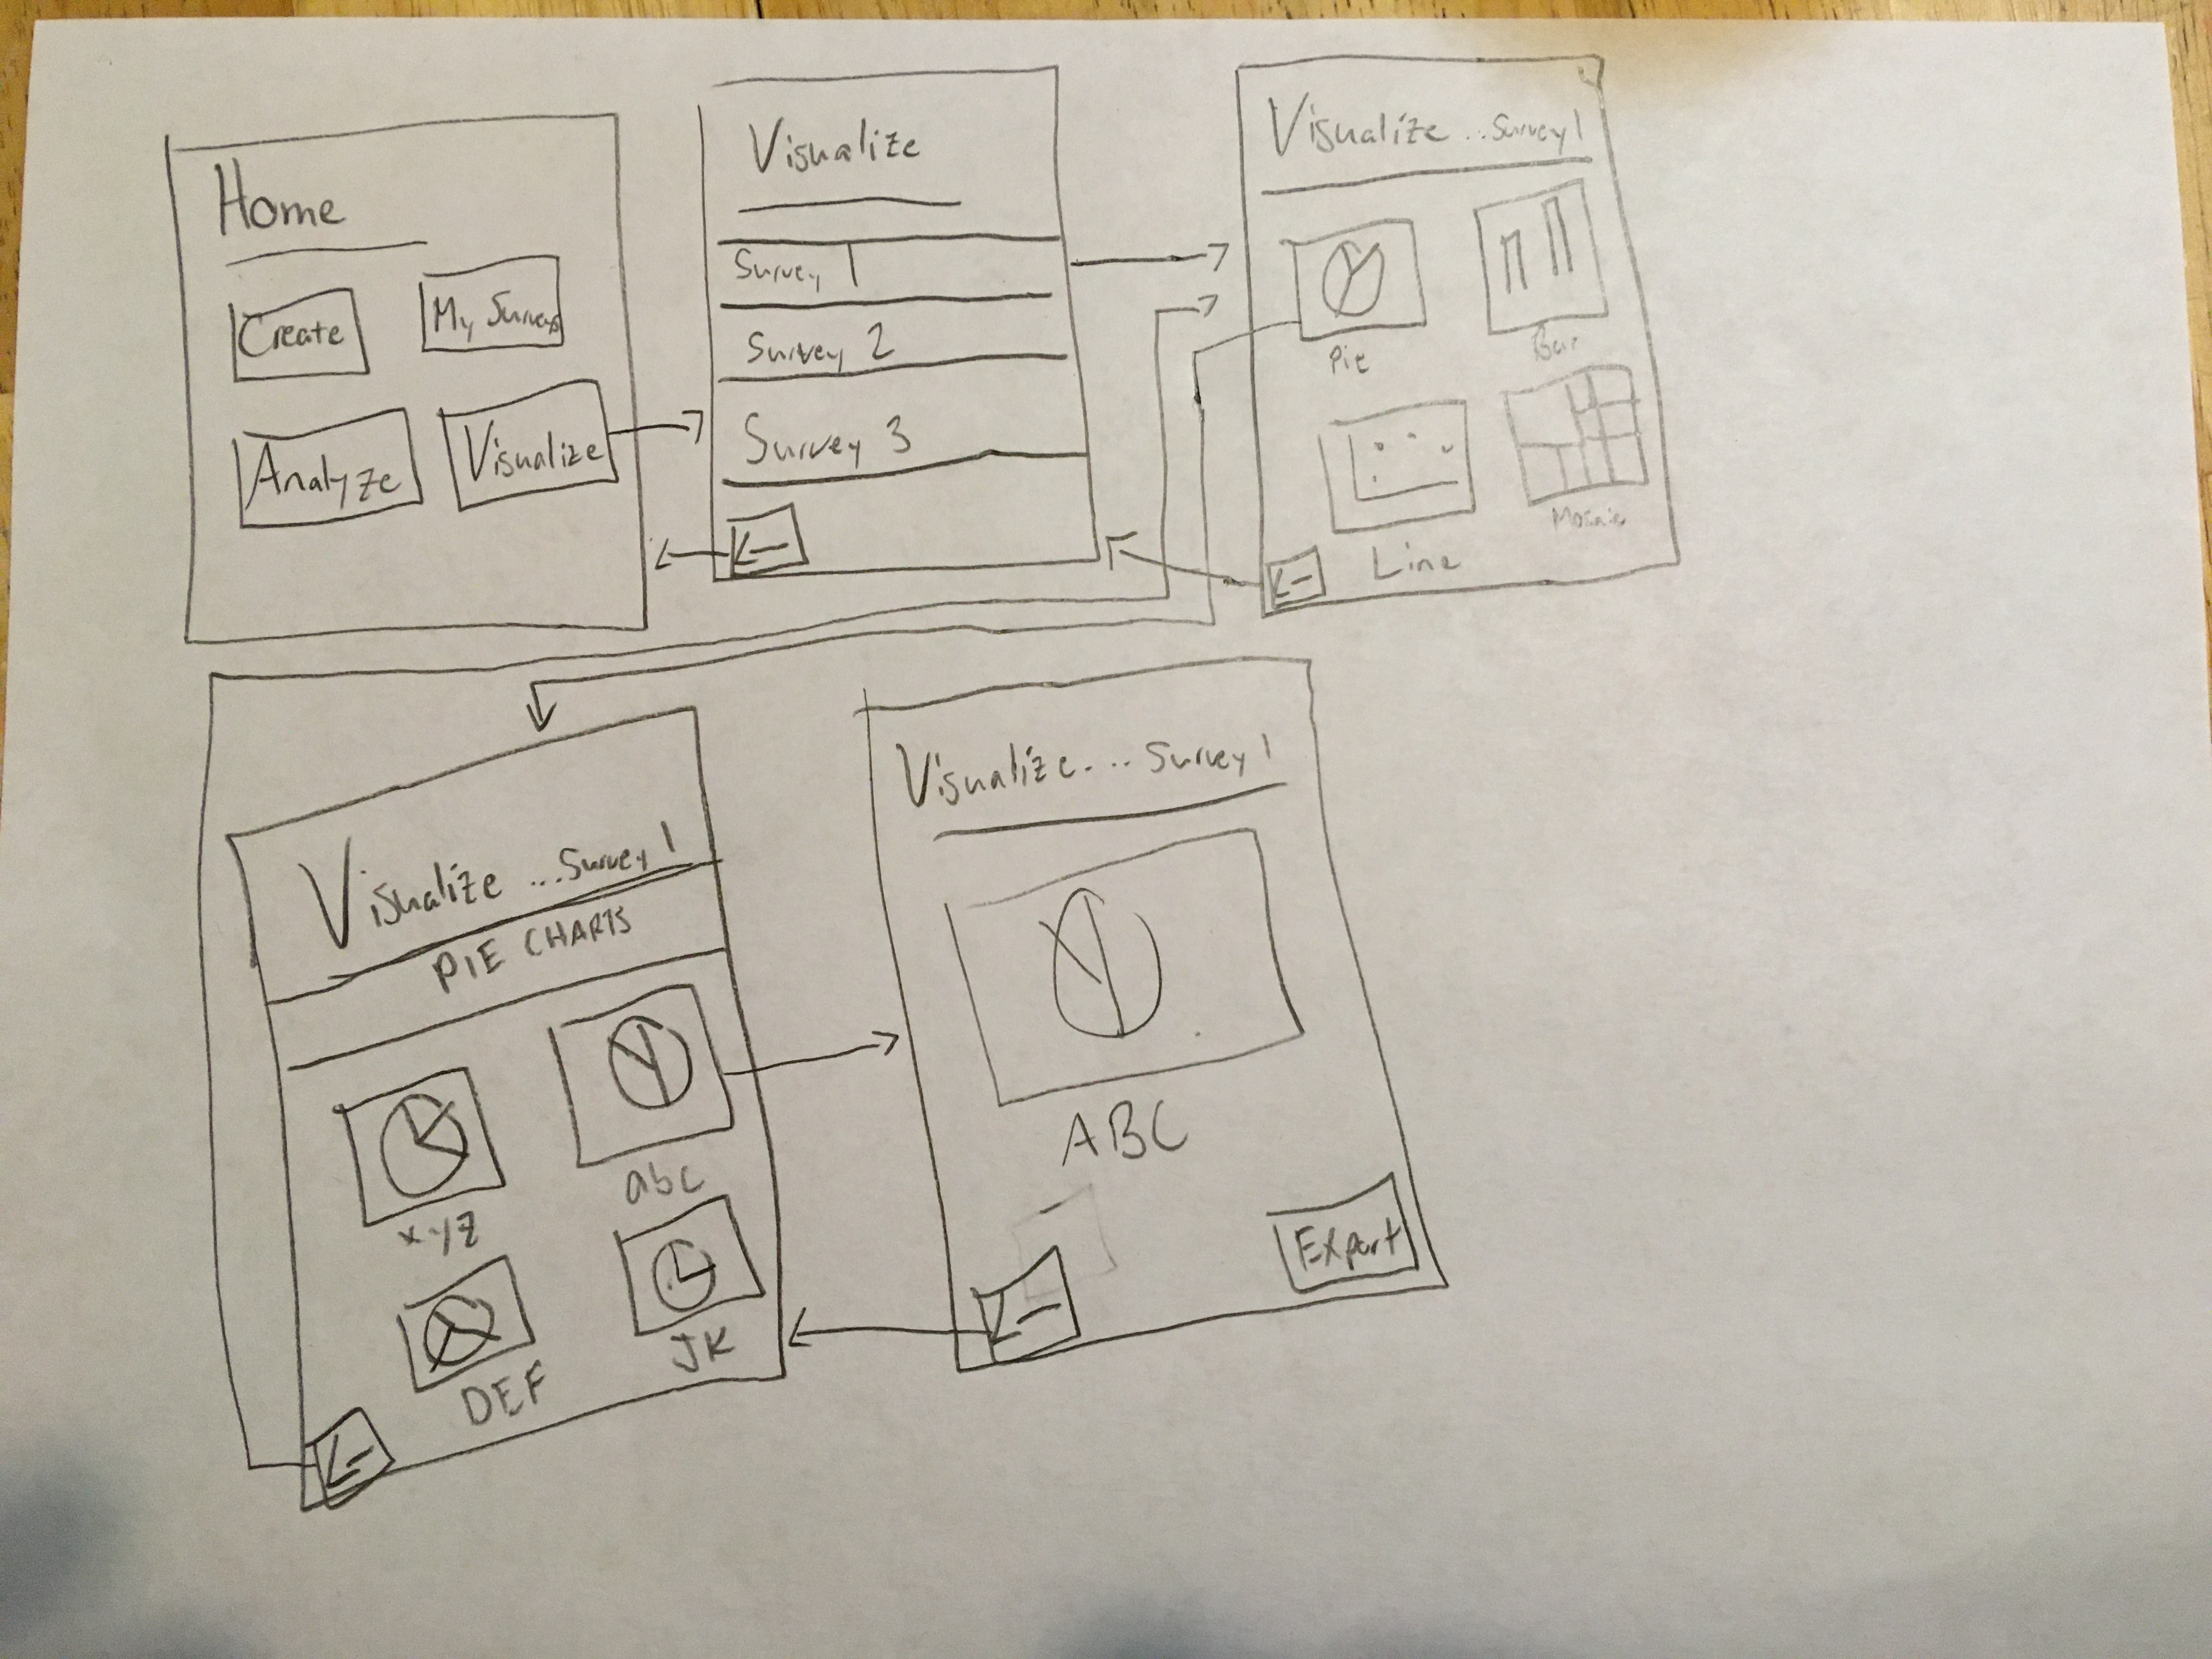 Home
Create
My Surveys
Analyze
Visualize
Visualize
Survey 1
Survey 2
Survey 3
Visualize ...Survey 1
Pie
Bar
Line
Mosaic
Visualize ...Survey 1
PIE CHARTS
xyz
abc
DEF
JK
Visualize.... Survey 1
ABC
Export